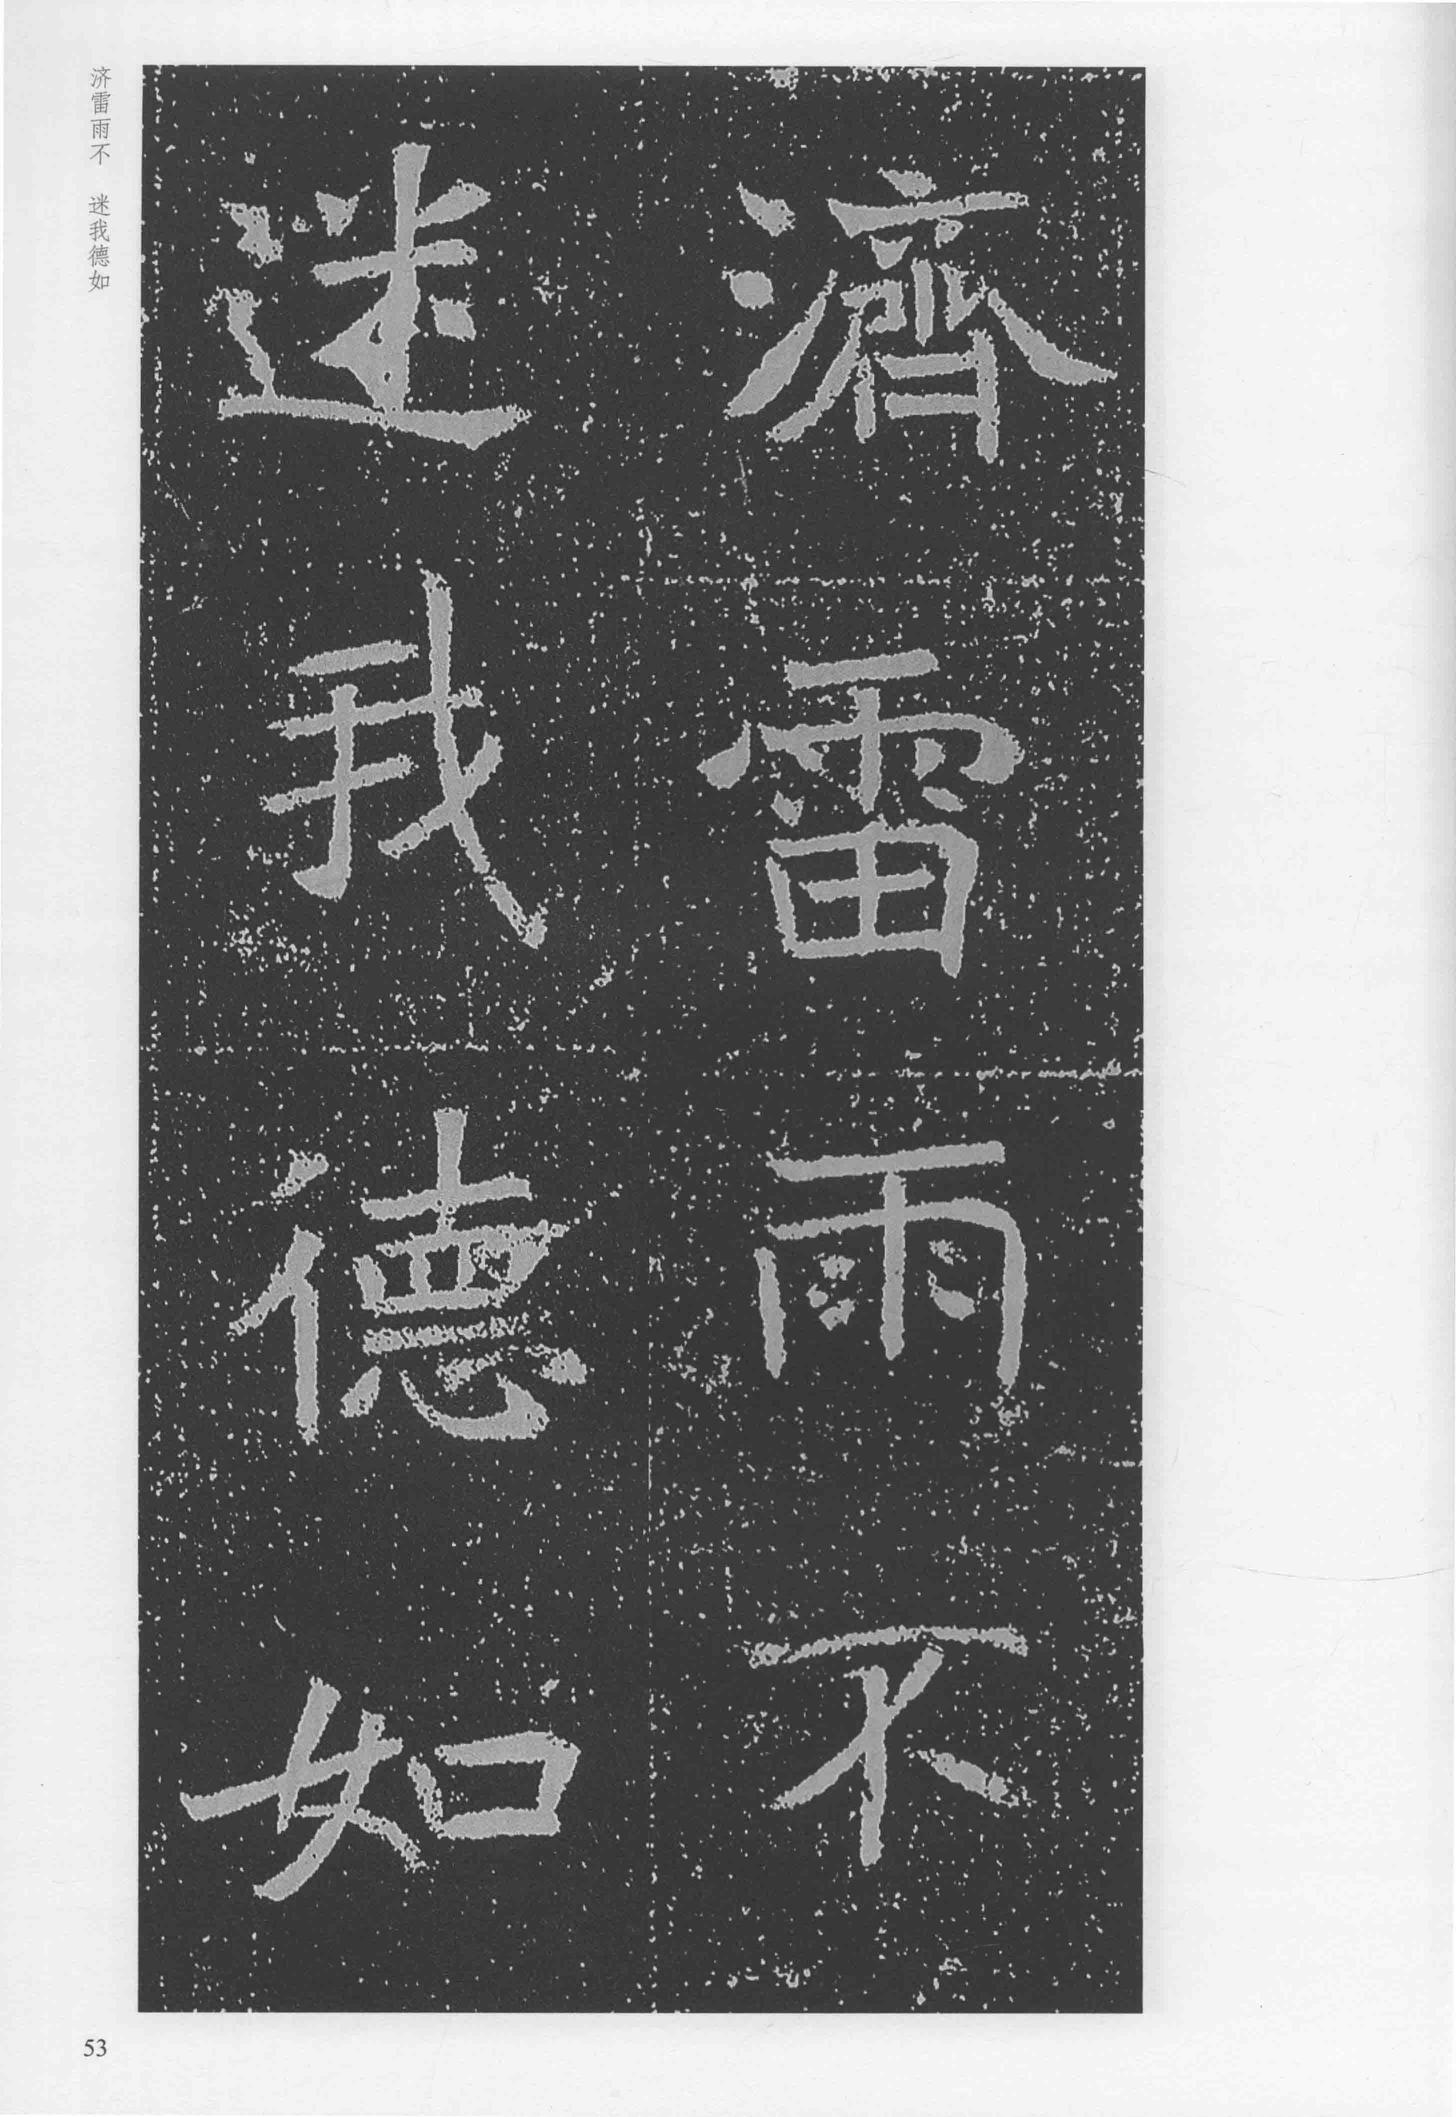 濟雷雨不
迷我德如
济雷雨不 迷我德如
53